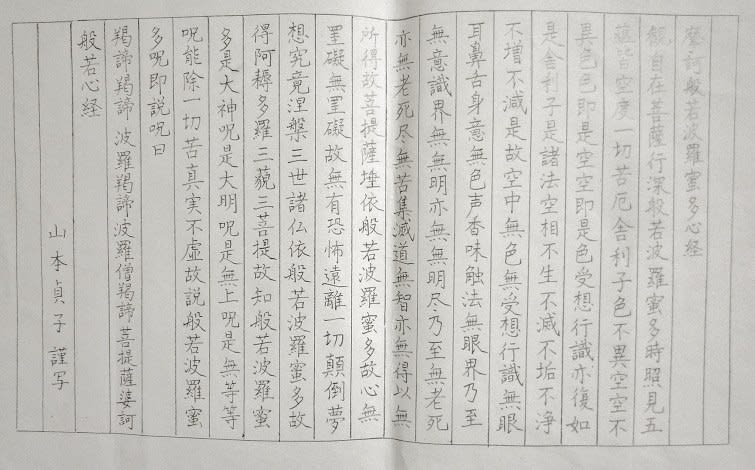 摩訶般若波羅蜜多心経
観自在菩薩行深般若波羅蜜多時照見五
蘊皆空度一切苦厄舎利子色不異空空不
異色色即是空空即是色受想行識亦復如
是舎利子是諸法空相不生不滅不垢不浄
不増不減是故空中無色無受想行識無眼
耳鼻舌身意無色声香味触法無眼界乃至
無意識界無無明亦無無明尽乃至無老死
亦無老死尽無苦集滅道無智亦無得以無
所得故菩提薩埵依般若波羅蜜多故心無
罣礙無罣礙故無有恐怖遠離一切顛倒夢
想究竟涅槃三世諸仏依般若波羅蜜多故
得阿耨多羅三藐三菩提故知般若波羅蜜
多是大神呪是大明呪是無上呪是無等等
呪能除一切苦真実不虚故説般若波羅蜜
多呪即説呪曰
羯諦羯諦波羅羯諦波羅僧羯諦菩提薩婆訶
般若心経
山本貞子謹写